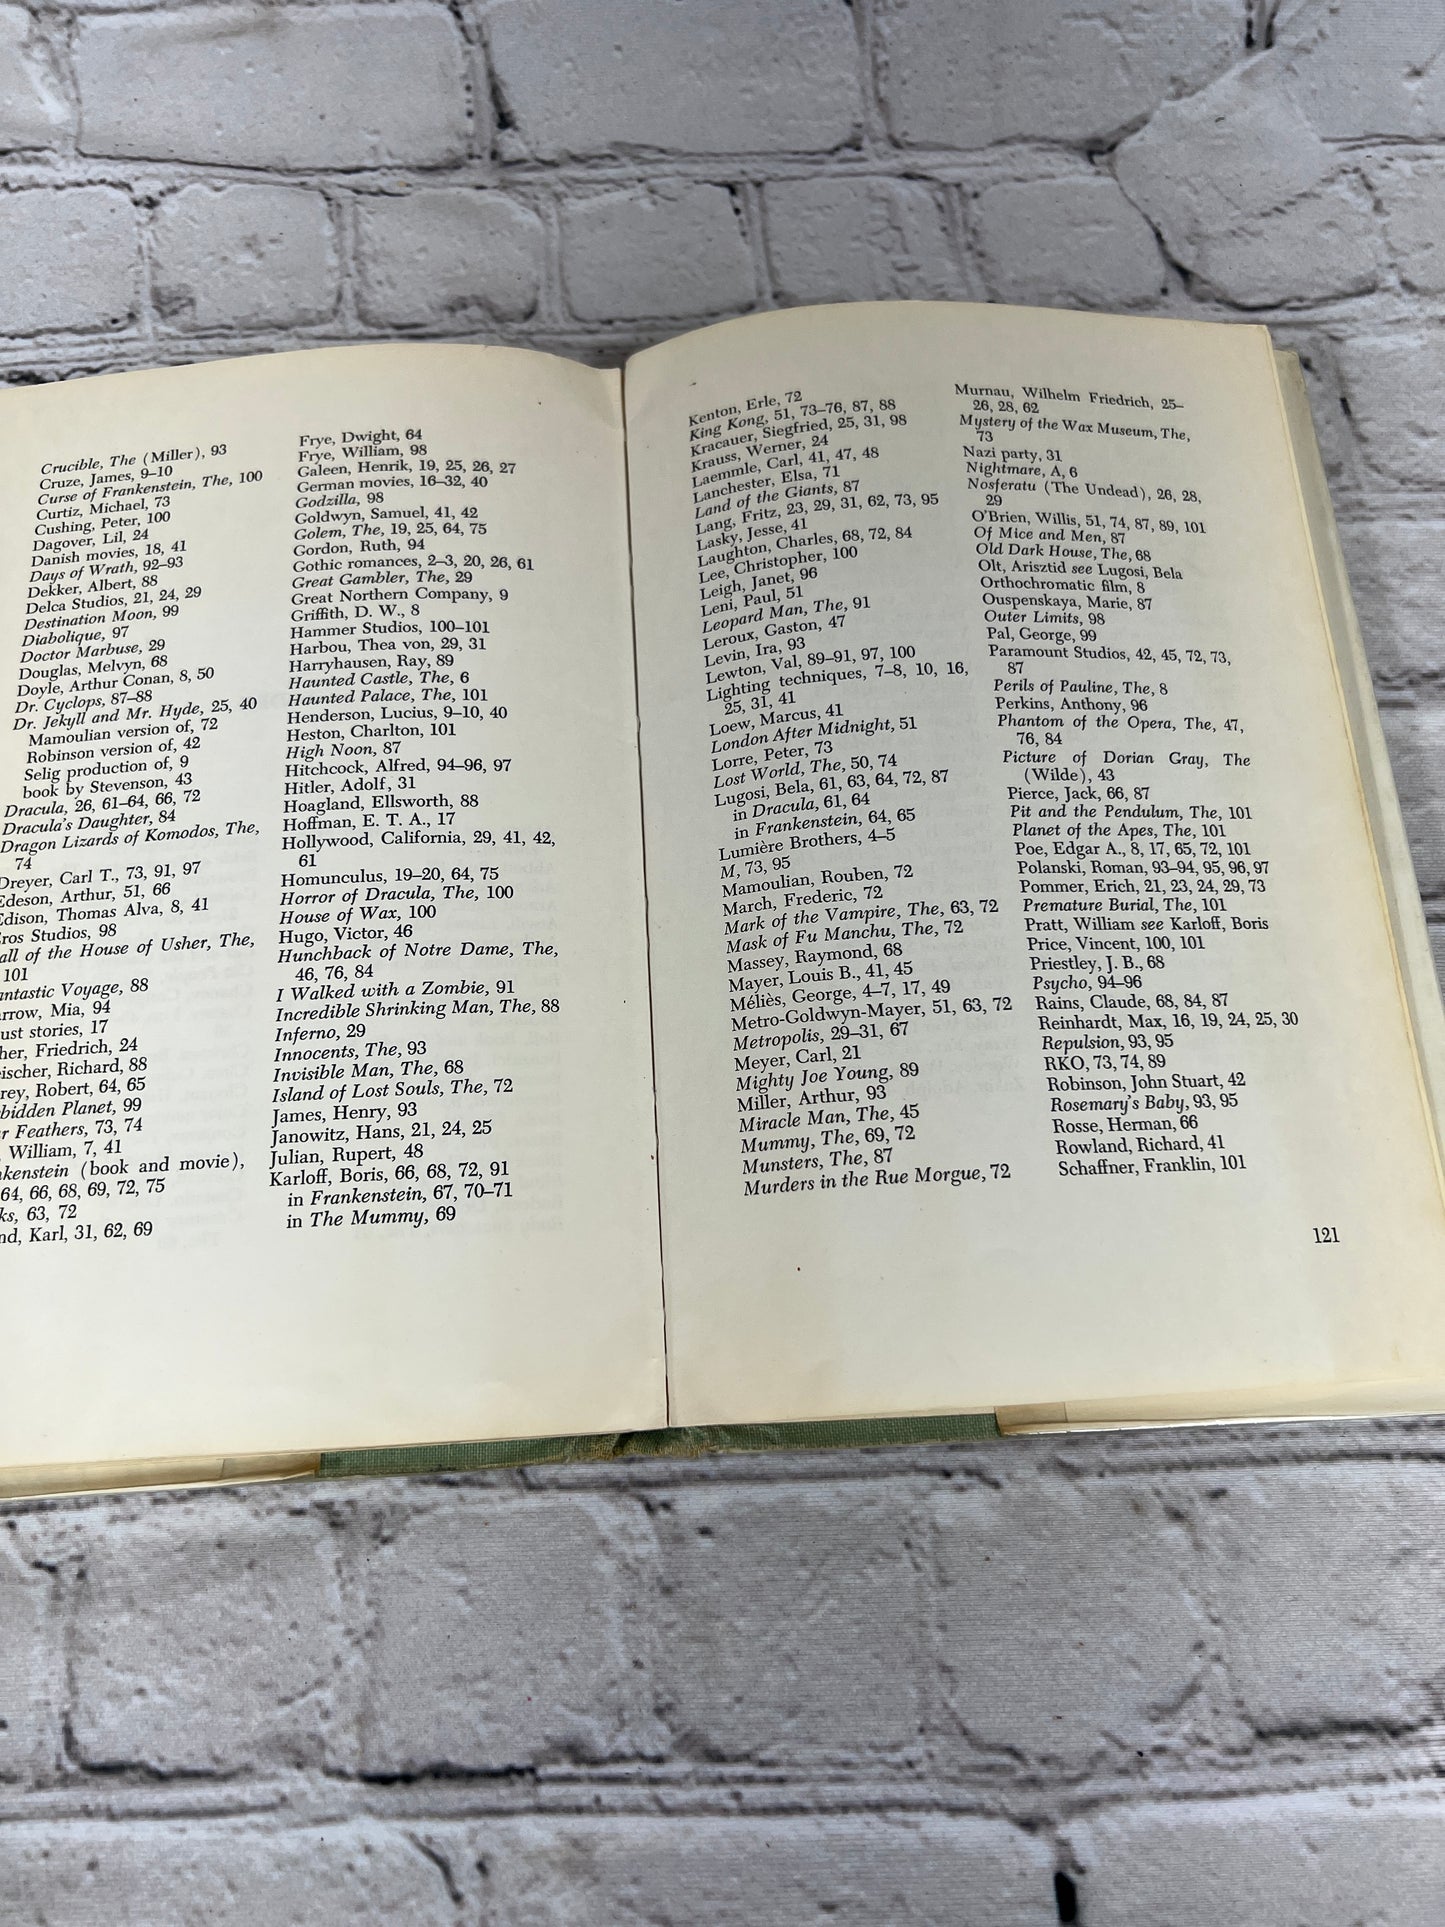 Crucible, The (Miller), 93
Cruze, James, 9–10
Curse of Frankenstein, The, 100
Curtiz, Michael, 73
Cushing, Peter, 100
Dagover, Lil, 24
Danish movies, 18, 41
Days of Wrath, 92–93
Dekker, Albert, 88
Delca Studios, 21, 24, 29
Destination Moon, 99
Diabolique, 97
Doctor Marbuse, 29
Douglas, Melvyn, 68
Doyle, Arthur Conan, 8, 50
Dr. Cyclops, 87–88
Dr. Jekyll and Mr. Hyde, 25, 40
Mamoulian version of, 72
Robinson version of, 42
Selig production of, 9
book by Stevenson, 43
Dracula, 26, 61–64, 66, 72
Dracula's Daughter, 84
Dragon Lizards of Komodos, The,
74
Dreyer, Carl T., 73, 91, 97
Edeson, Arthur, 51, 66
Edison, Thomas Alva, 8, 41
ros Studios, 98
all of the House of Usher, The,
101
antastic Voyage, 88
arrow, Mia, 94
ust stories, 17
her, Friedrich, 24
eischer, Richard, 88
rey, Robert, 64, 65
bidden Planet, 99
r Feathers, 73, 74
, William, 7, 41
kenstein (book and movie),
64, 66, 68, 69, 72, 75
ks, 63, 72
nd, Karl, 31, 62, 69
Frye, Dwight, 64
Frye, William, 98
Galeen, Henrik, 19, 25, 26, 27
German movies, 16–32, 40
Godzilla, 98
Goldwyn, Samuel, 41, 42
Golem, The, 19, 25, 64, 75
Gordon, Ruth, 94
Gothic romances, 2–3, 20, 26, 61
Great Gambler, The, 29
Great Northern Company, 9
Griffith, D. W., 8
Hammer Studios, 100–101
Harbou, Thea von, 29, 31
Harryhausen, Ray, 89
Haunted Castle, The, 6
Haunted Palace, The, 101
Henderson, Lucius, 9–10, 40
Heston, Charlton, 101
High Noon, 87
Hitchcock, Alfred, 94–96, 97
Hitler, Adolf, 31
Hoagland, Ellsworth, 88
Hoffman, E. T. A., 17
Hollywood, California, 29, 41, 42,
61
Homunculus, 19–20, 64, 75
Horror of Dracula, The, 100
House of Wax, 100
Hugo, Victor, 46
Hunchback of Notre Dame, The,
46, 76, 84
I Walked with a Zombie, 91
Incredible Shrinking Man, The, 88
Inferno, 29
Innocents, The, 93
Invisible Man, The, 68
Island of Lost Souls, The, 72
James, Henry, 93
Janowitz, Hans, 21, 24, 25
Julian, Rupert, 48
Karloff, Boris, 66, 68, 72, 91
in Frankenstein, 67, 70–71
in The Mummy, 69
Kenton, Erle, 72
King Kong, 51, 73–76, 87, 88
Kracauer, Siegfried, 25, 31, 98
Krauss, Werner, 24
Laemmle, Carl, 41, 47, 48
Lanchester, Elsa, 71
Land of the Giants, 87
Lang, Fritz, 23, 29, 31, 62, 73, 95
Lasky, Jesse, 41
Laughton, Charles, 68, 72, 84
Lee, Christopher, 100
Leigh, Janet, 96
Leni, Paul, 51
Leopard Man, The, 91
Leroux, Gaston, 47
Levin, Ira, 93
Lewton, Val, 89–91, 97, 100
Lighting techniques, 7–8, 10, 16,
25, 31, 41
Loew, Marcus, 41
London After Midnight, 51
Lorre, Peter, 73
Lost World, The, 50, 74
Lugosi, Bela, 61, 63, 64, 72, 87
in Dracula, 61, 64
in Frankenstein, 64, 65
Lumière Brothers, 4–5
M, 73, 95
Mamoulian, Rouben, 72
March, Frederic, 72
Mark of the Vampire, The, 63, 72
Mask of Fu Manchu, The, 72
Massey, Raymond, 68
Mayer, Louis B., 41, 45
Méliès, George, 4–7, 17, 49
Metro-Goldwyn-Mayer, 51, 63, 72
Metropolis, 29–31, 67
Meyer, Carl, 21
Mighty Joe Young, 89
Miller, Arthur, 93
Miracle Man, The, 45
Mummy, The, 69, 72
Munsters, The, 87
Murders in the Rue Morgue, 72
Murnau, Wilhelm Friedrich, 25–
26, 28, 62
Mystery of the Wax Museum, The,
73
Nazi party, 31
Nightmare, A, 6
Nosferatu (The Undead), 26, 28,
29
O'Brien, Willis, 51, 74, 87, 89, 101
Of Mice and Men, 87
Old Dark House, The, 68
Olt, Arisztid see Lugosi, Bela
Orthochromatic film, 8
Ouspenskaya, Marie, 87
Outer Limits, 98
Pal, George, 99
Paramount Studios, 42, 45, 72, 73,
87
Perils of Pauline, The, 8
Perkins, Anthony, 96
Phantom of the Opera, The, 47,
76, 84
Picture of Dorian Gray, The
(Wilde), 43
Pierce, Jack, 66, 87
Pit and the Pendulum, The, 101
Planet of the Apes, The, 101
Poe, Edgar A., 8, 17, 65, 72, 101
Polanski, Roman, 93–94, 95, 96, 97
Pommer, Erich, 21, 23, 24, 29, 73
Premature Burial, The, 101
Pratt, William see Karloff, Boris
Price, Vincent, 100, 101
Priestley, J. B., 68
Psycho, 94–96
Rains, Claude, 68, 84, 87
Reinhardt, Max, 16, 19, 24, 25, 30
Repulsion, 93, 95
RKO, 73, 74, 89
Robinson, John Stuart, 42
Rosemary's Baby, 93, 95
Rosse, Herman, 66
Rowland, Richard, 41
Schaffner, Franklin, 101
121